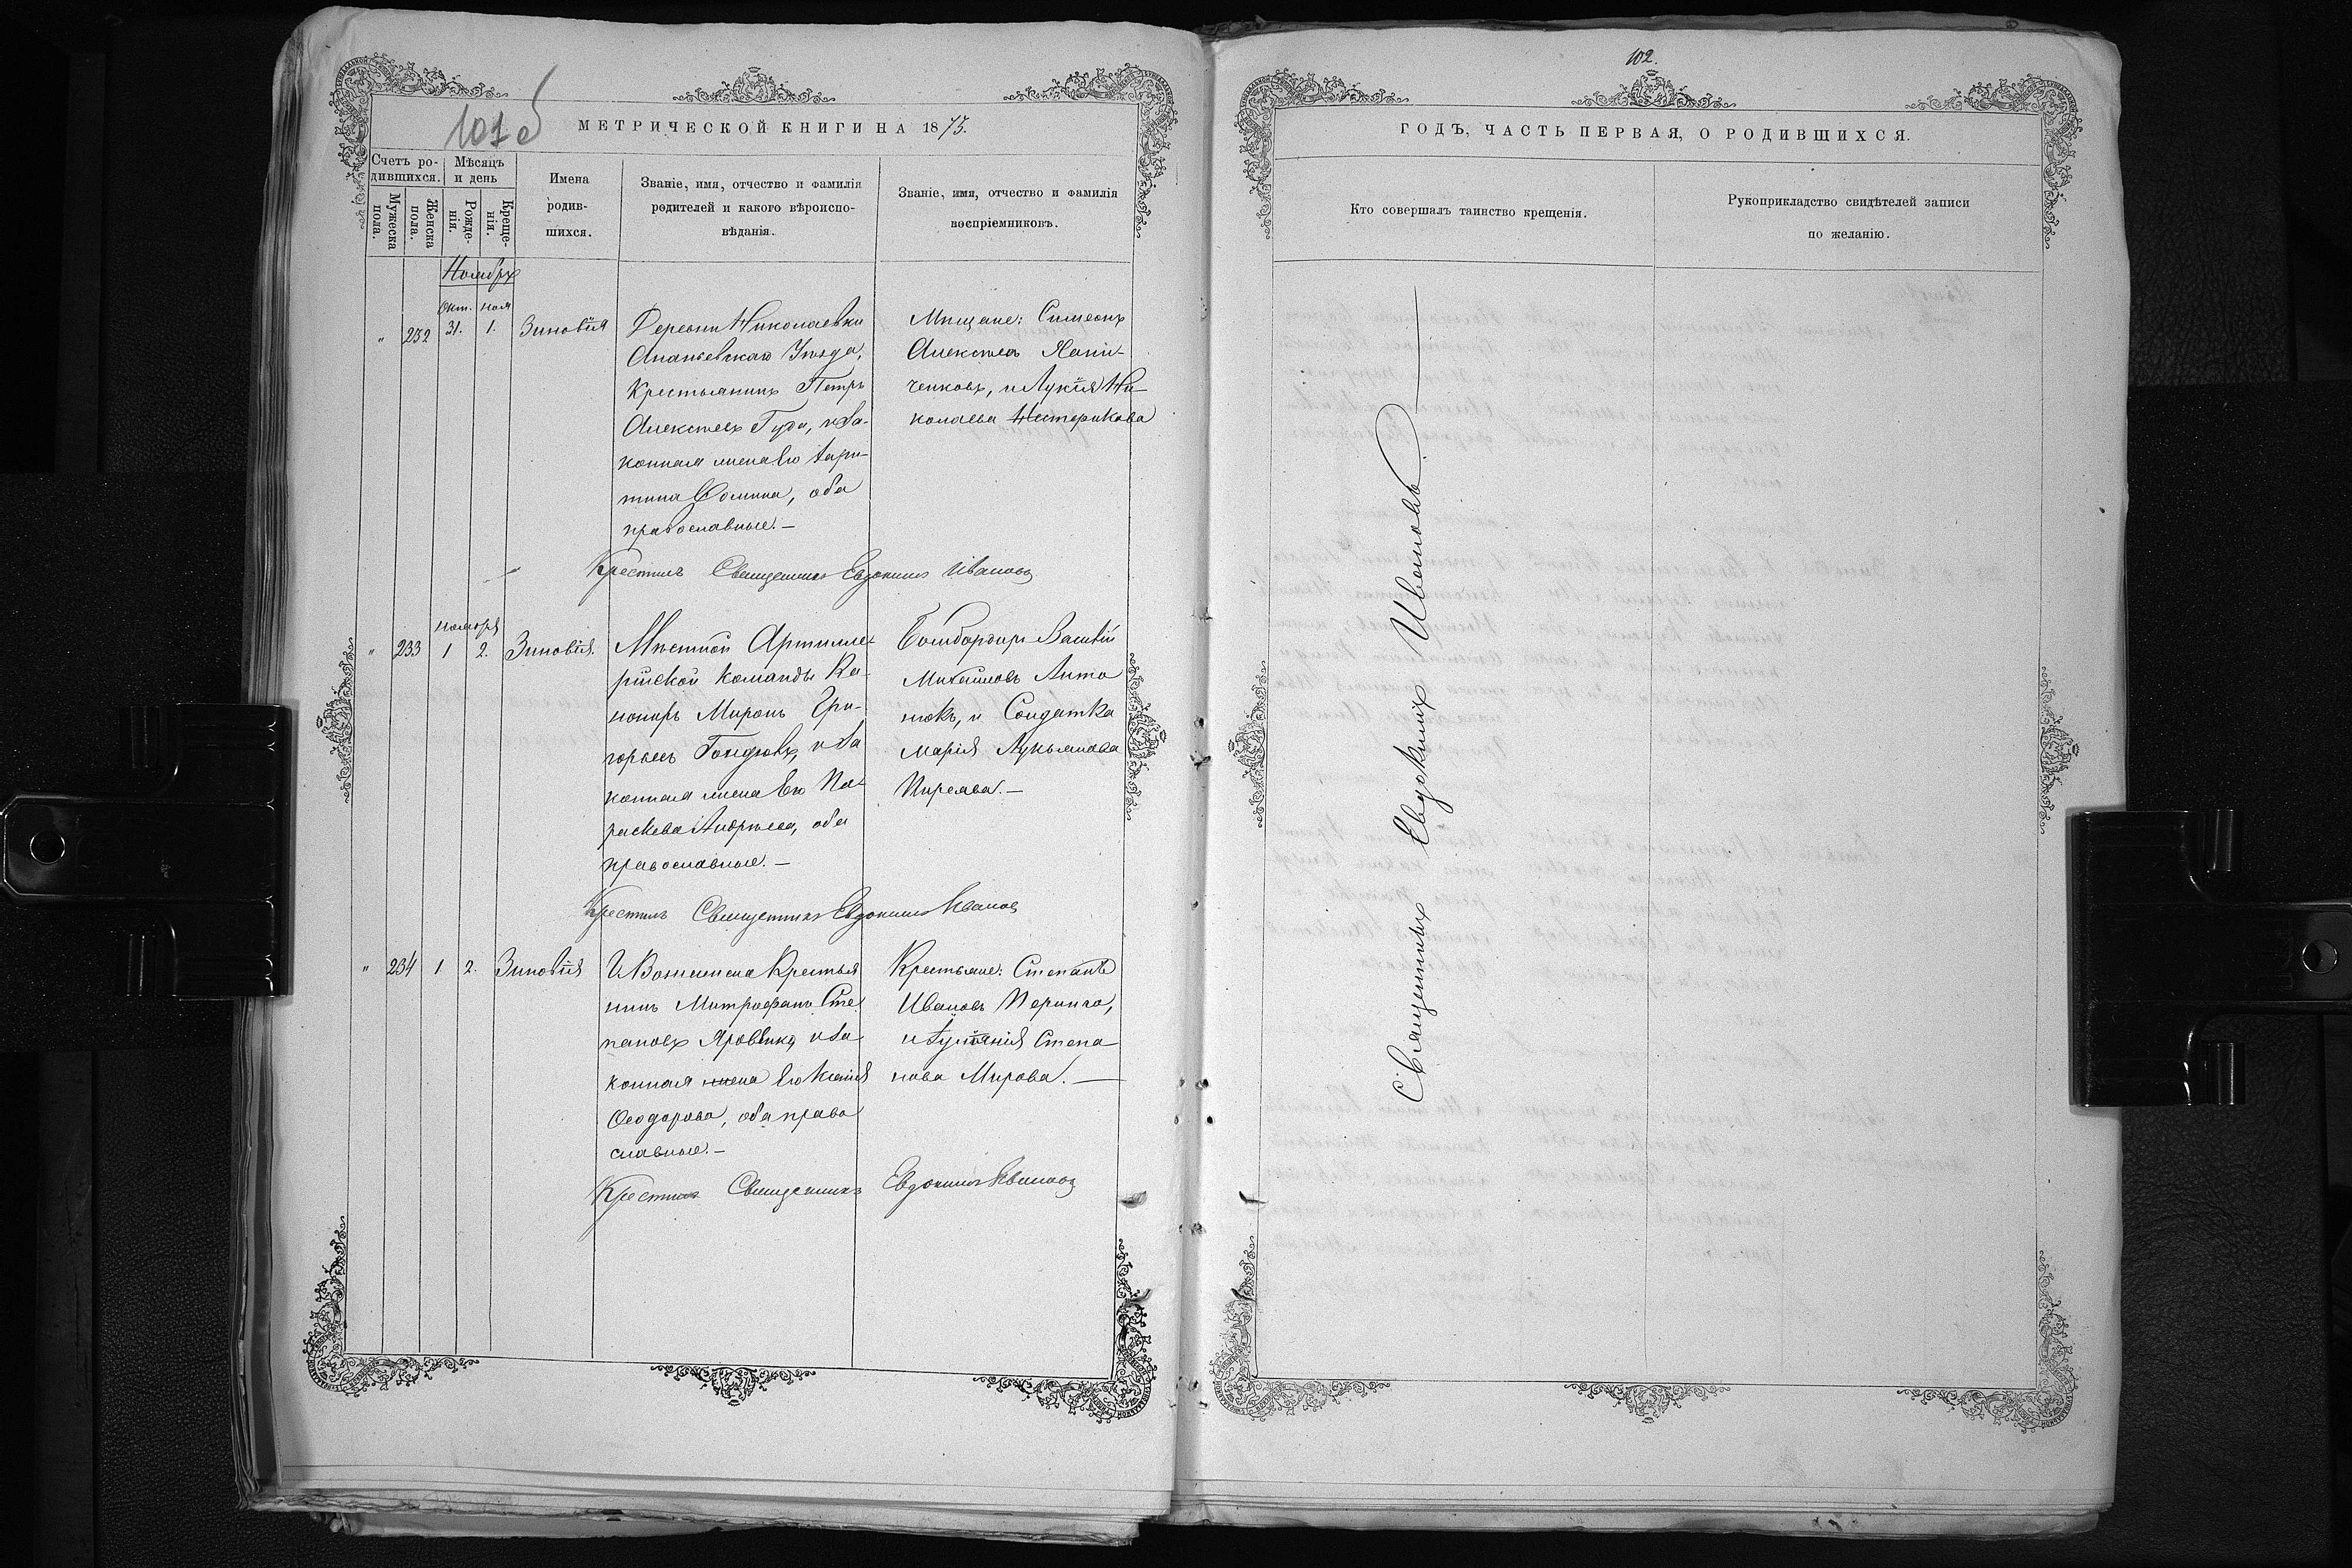 МЕТРИЧЕСКОЙ КНИГИ НА 1875.
101
Счетъ ро-
дившихся.
Мѣсяцъ
и день
Мужеска
пола.
Женска
пола.
Рожде-
нія.
Креще-
нія.
Имена
родив-
шихся.
Званіе, имя, отчество и фамилія
родителей и какого вѣроиспо-
вѣданія.
Званіе, имя, отчество и фамилія
воспріемниковъ.
Ноябрь
Окт. ноя
" 232 31. 1. Зиновія
Деревни Николаевки
Ананьевскаго Уѣзда,
Крестьянинъ Петръ
Алексѣевъ Гуда, и За-
конная жена Его Хари-
тина Ѳомина, оба
православные. —
Мѣщане: Симеонъ
Алексѣевъ
ченковъ, и Лукія Ни-
колаева Нестерикова
Крестилъ Священникъ Евдокимъ Ивановъ
ноября
" 233 1 2. Зиновія.
Мѣстной Артилле-
рійской Команды Ка-
нониръ Миронъ Гри-
горьевъ и За
конная жена Его Па-
раскева Андреева, оба
православные. —
Бомбардиръ Василій
Михайловъ Анто
нюкъ, и Солдатка
Марія Лукьянова
Крестилъ Священникъ Евдокимъ Ивановъ
" 234 1 2. Зиновія
Г. Вознесенска Крестья
нинъ Митрофанъ Сте
пановъ и За
конная жена Его Ксенія
Ѳеодорова, оба право
славные. —
Крестьяне: Степанъ
Ивановъ
и Степа
нова Мирова. —
Крестилъ Священникъ Евдокимъ Ивановъ
102.
ГОДЪ, ЧАСТЬ ПЕРВАЯ, О РОДИВШИХСЯ.
Кто совершалъ таинство крещенія.
Рукоприкладство свидѣтелей записи
по желанію.
Священникъ Евдокимъ Ивановъ.